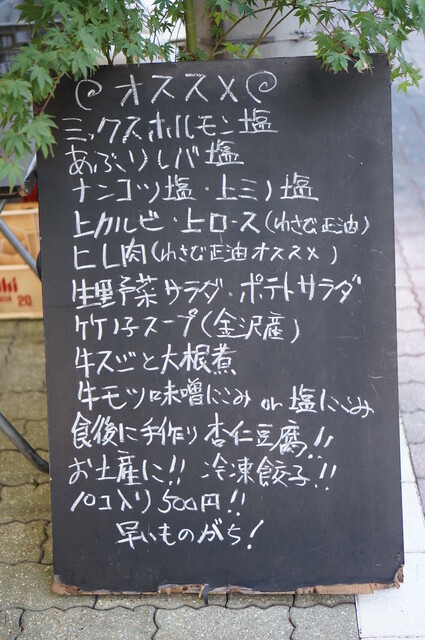 オススメ
ミックスホルモン塩
あぶりレバ塩
ナンコツ塩・上ミノ塩
上カルビ・上ロース(わさび正油)
ヒレ肉(わさび正油オススメ)
生野菜サラダ・ポテトサラダ
竹の子スープ(金沢産)
牛スジと大根煮
牛モツ味噌にこみ or 塩にこみ
食後に手作り杏仁豆腐!!
お土産に!! 冷凍餃子!!
10コ入り500円!!
早いものがち!
20